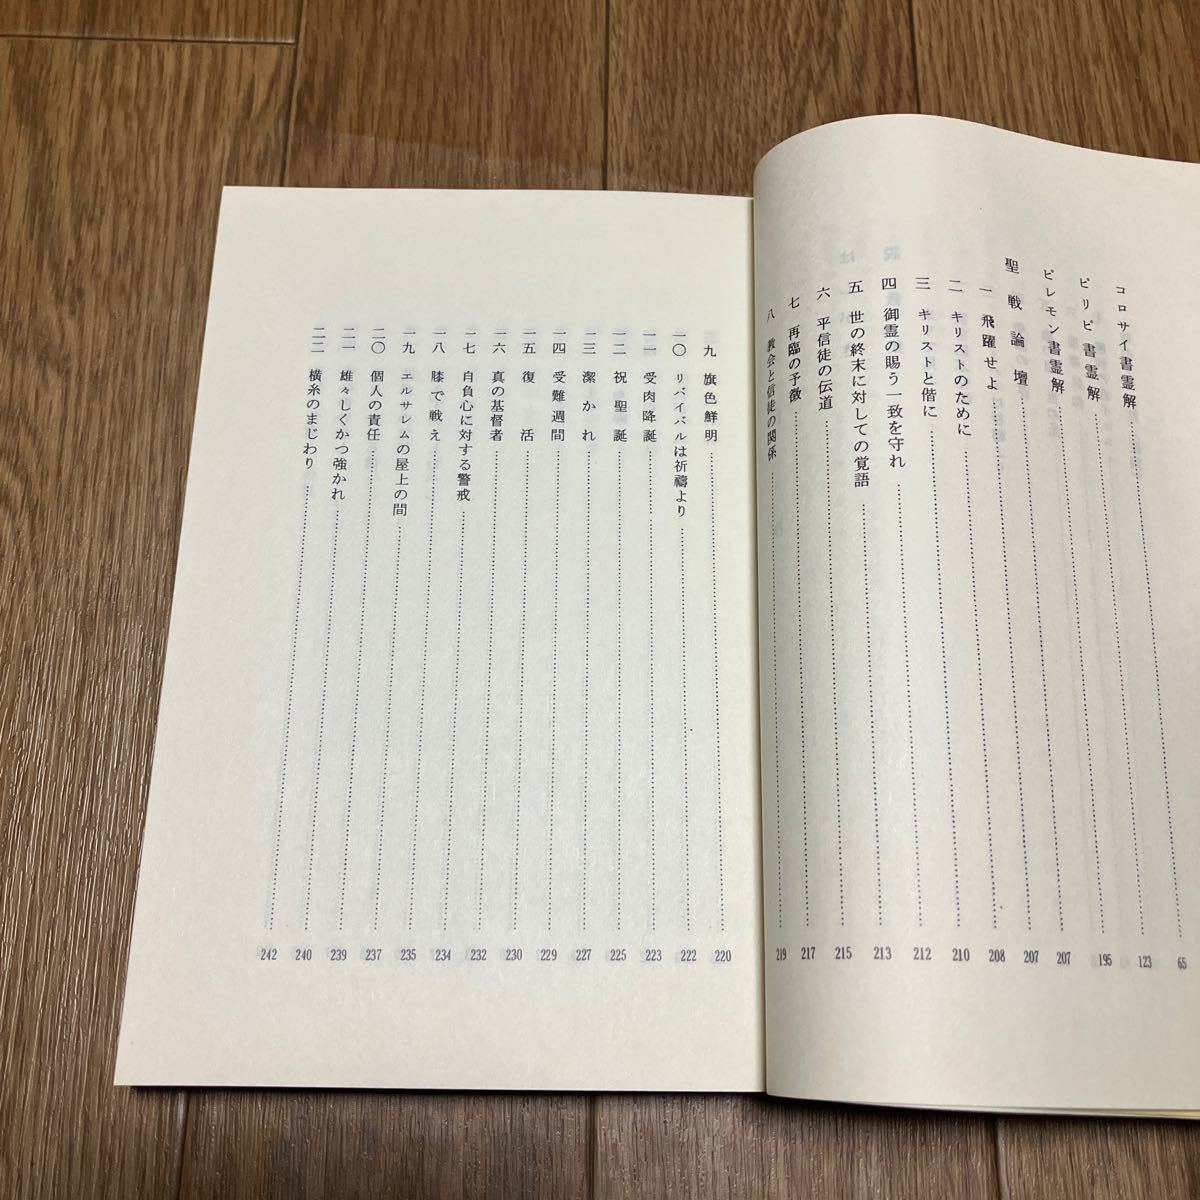 コロサイ書霊解 65
ピリピ書霊解 123
ピレモン書霊解 195
聖戦論壇 207
一 飛躍せよ 207
二 キリストのために 208
三 キリストと偕に 210
四 御霊の賜う一致を守れ 212
五 世の終末に対しての覚語 213
六 平信徒の伝道 215
七 再臨の予徴 217
八 教会と信徒の関係 219
九 旗色鮮明 220
一〇 リバイバルは祈禱より 222
一一 受肉降誕 223
一二 祝聖誕 225
一三 潔かれ 227
一四 受難週間 229
一五 復活 230
一六 真の基督者 232
一七 自負心に対する警戒 234
一八 膝で戦え 235
一九 エルサレムの屋上の間 237
二〇 個人の責任 239
二一 雄々しくかつ強かれ 240
二二 横糸のまじわり 242